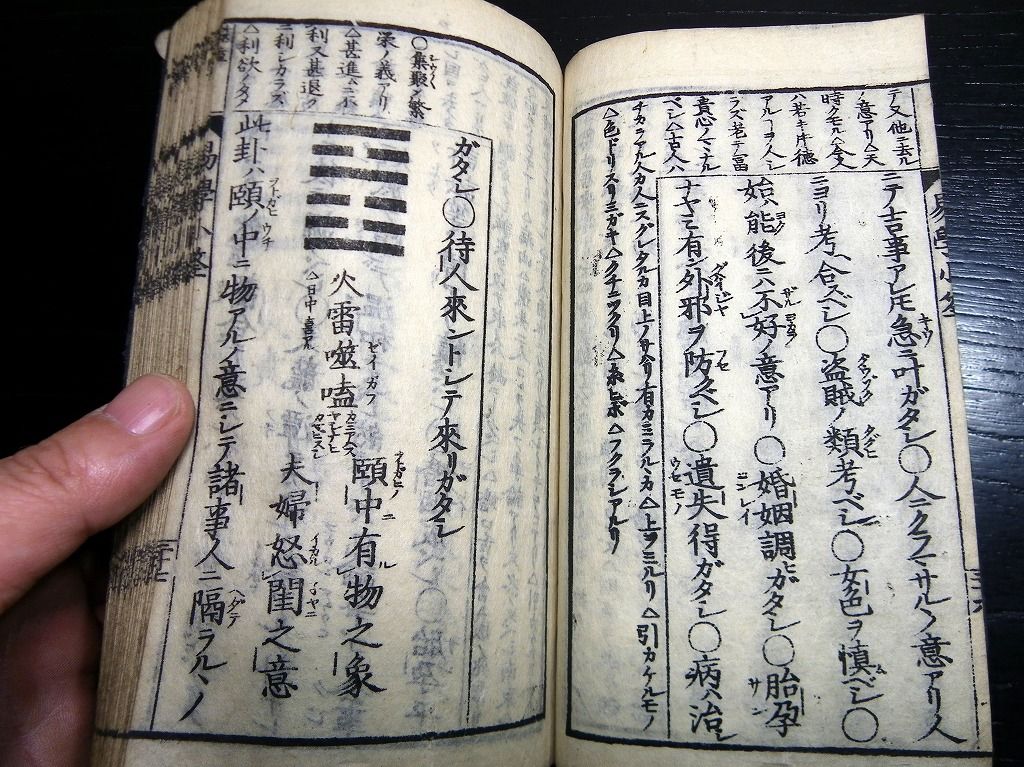 テ又他ニ去ル
ノ意アリ△天
時クモル△今人
ハ若キ片徳
アル
ラズ老テ富
貴心ノマヽナル
ベシ△古人ハ
ニテ吉事アレ圧急ニ叶ガタシ○人ニクラマサルヽノ意アリ人
ニヨリ考合スベシ○盗賊ノ類考ベシ○女色ヲ慎ベシ○
始ハ能後ニハ不好ノ意アリ○婚姻調ヒガタシ○胎孕
ナヤミ有ン外邪ヲ防クベシ○遺失得ガタシ○病ハ治シ
チカラアル人カ人ニスグレタルカ目上ノサハリ有カミラルヽカ△上ヲミルリ△引カケルモノ
△色ドリスリミガキ△クチニツクリ△糸ヒボ△フクラシアルリ
○集聚ノ繁
栄ノ義アリ
△甚進ムニ不
利又甚退ク
ニ利シカラズ
△利欲ノタメ
ガタシ○待人來ントシテ來リガタシ
火雷噬嗑
△日中
頤中有物之象
夫婦怒閨之意
此卦ハ頤ノ中ニ物アルノ意ニシテ諸事人ニ隔ラルヽノ
易學小筌